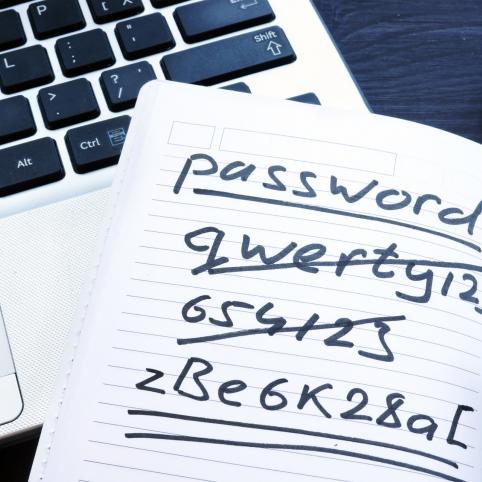 P
{ [
Shift
L
: ;
" '
> .
? /
Alt
Ctrl
password
qwerty123
654123
zBe6K28a[